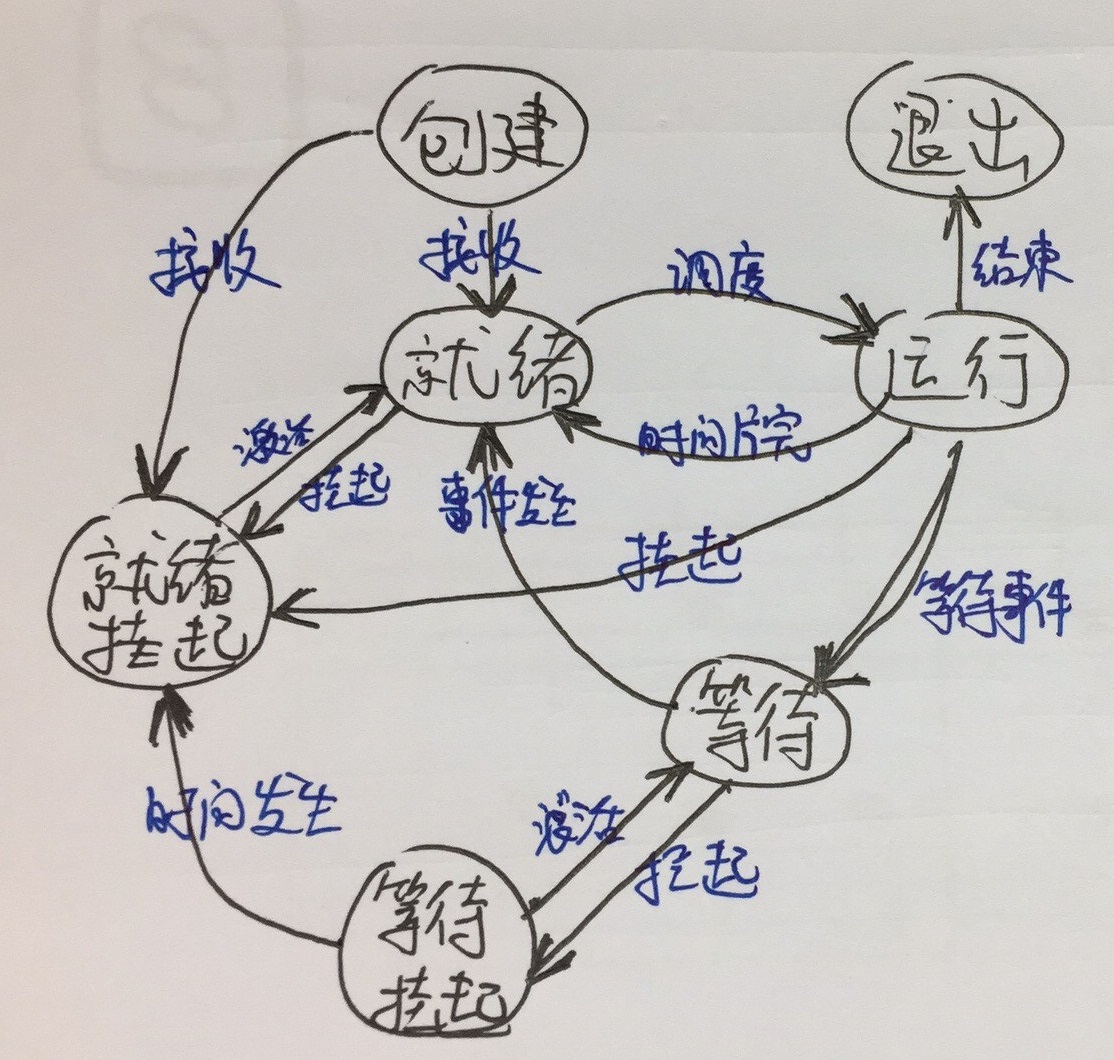 创建
退出
接收
接收
调度
结束
就绪
运行
激活
挂起
事件发生
时间片完
挂起
就绪
挂起
等待事件
等待
时间发生
激活
挂起
等待
挂起